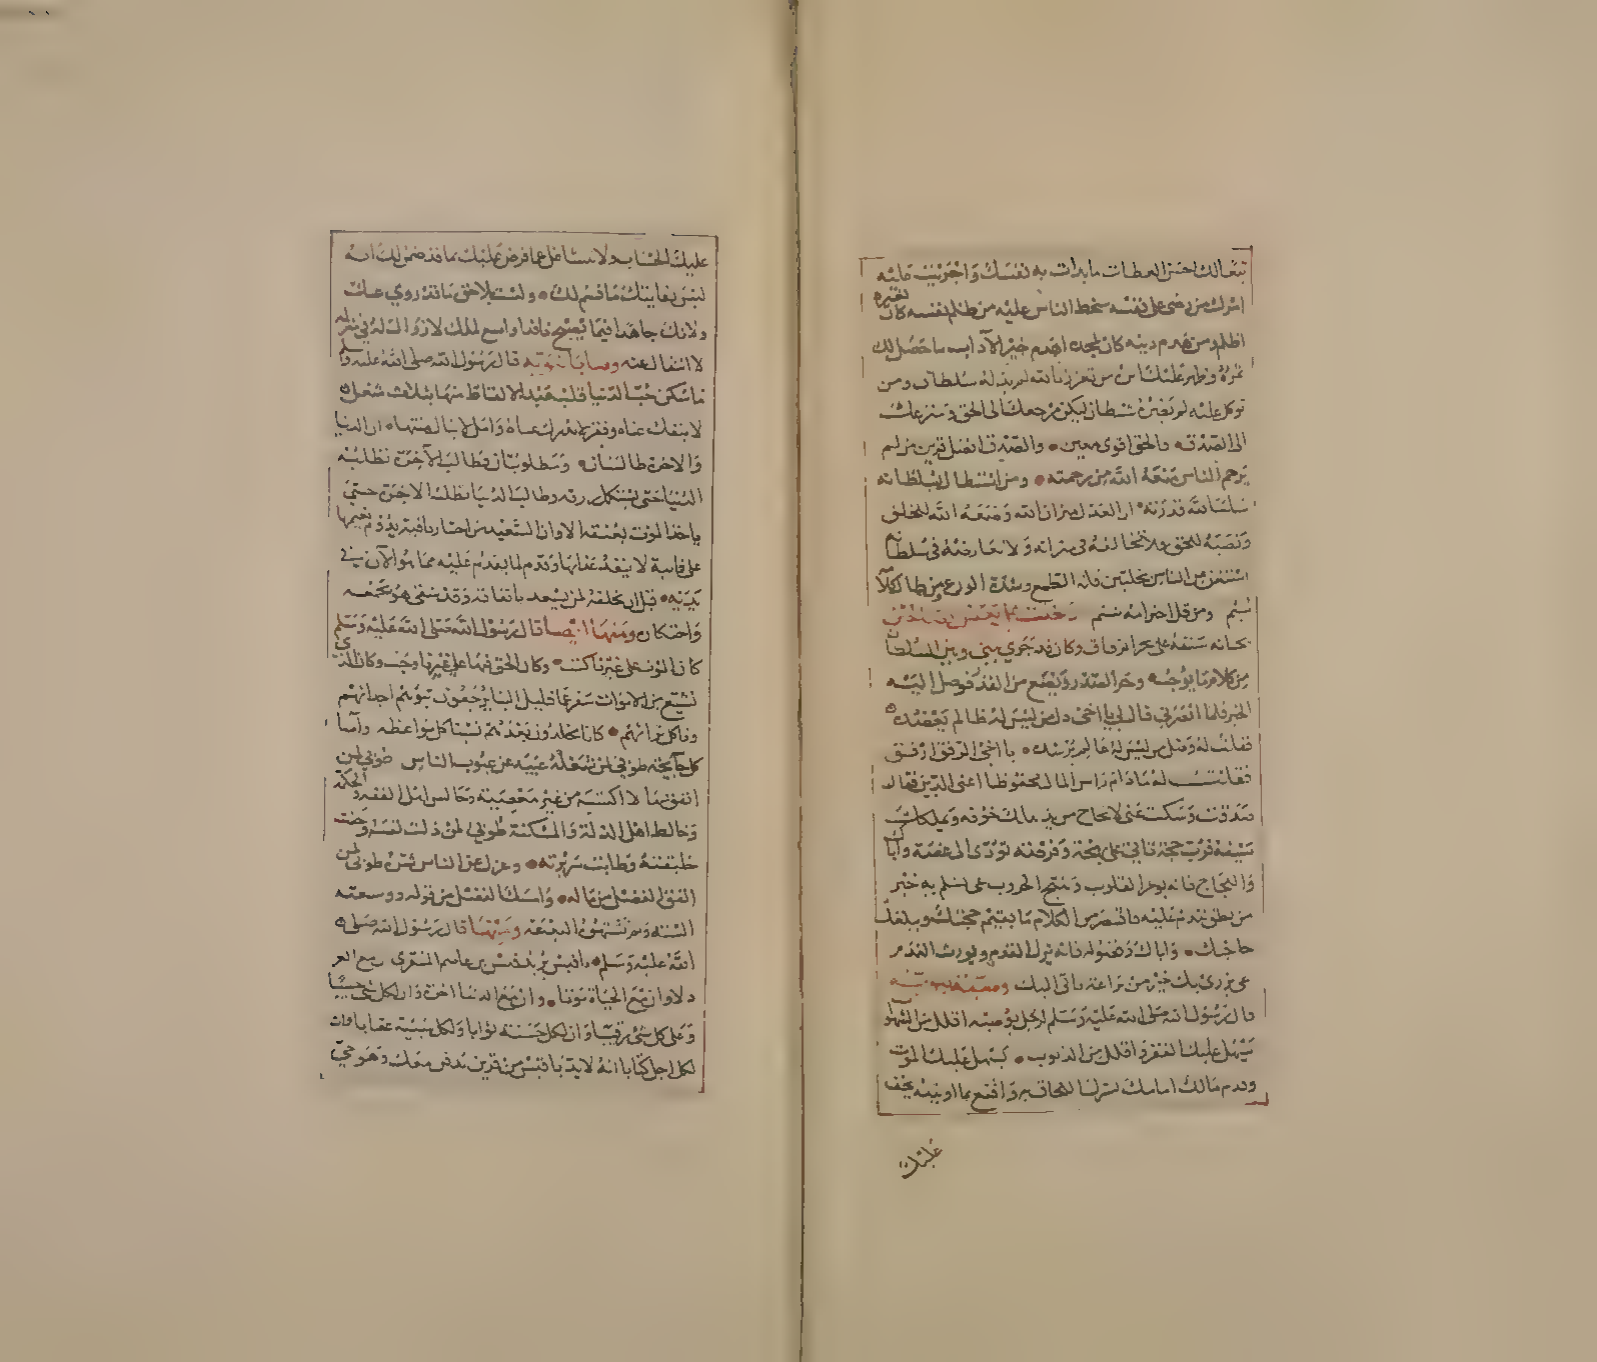 تبغى لك احسن العظات ما بدات به نفسك واجريت عليه
امرك من رضى على نفسه سخط الناس عليه من ظلم نفسه كان لغيره
اظلم ومن هدم دينه كان لمجده اهدم خير الاداب ما حصل لك
ثمره وظهر عليك اثره من تعزز بالله لم يذله سلطان ومن
توكل عليه لم يضره شيطان ليكن مرجعك الى الحق ومنزعك
الى الصدق فالحق اقوى معين والصدق افضل قرين من لم
يرحم الناس منعه الله من رحمته ومن استطال بسلطانه
سلبه الله قدرته ان العدل ميزان الله وضعه الله للخلق
ونصبه للحق فلا تخالفه في ميزانه ولا تعارضه في سلطانه
استغن عن الناس بخلتين قلة الطمع وشدة الورع من طال كلامه
سئم ومن قل احترامه شتم
من كلام ما يوجب وحر الصدر ويضع من القدر فوصل اليه
الخبر فلما انصرفي قال لي يا اخي ذل من ليس له ظالم يعضده
فقلت له وضل من ليس له عالم يرشده يا اخي الرفق ارفق
فقلت له ما دام راس المال محفوظا اعني الدين فقال
صدقت وسكت عني
سيفه فرب حجة تاتي على مهجة وفرصة تؤدي الى غصة واياك
واللجاج فانه يوغر القلوب وينتج الحروب عي تسلم به خير
من نطق تندم عليه فاقتصر من الكلام ما يقيم حجتك ويبلغك
حاجتك واياك وفضوله فانه يزل القدم ويورث الندم
عي يزري بك خير من براعة تاتي اليك ومن
قال رسول الله صلى الله عليه وسلم لرجل يوصيه اقلل من الشهوات
يسهل عليك الفقر واقلل من الذنوب يسهل عليك الموت
وقدم مالك امامك يسرك اللحاق به واقنع بما اوتيته يخف
عليك
عليك الحساب ولا تتشاغل عما فرض عليك بما قد ضمن لك انه
ليس بفايتك ما قسم لك ولست بلاحق ما قد زوي عنك
ولا تك جاهدا فيما يصبح نافدا واسع لملك لا زوال له في منزل
لا انتقال عنه ومن قال رسول الله صلى الله عليه وسلم
ما سكن حب الدنيا قلب عبد الا التاط منها بثلاث شغل
لا ينفك عناه وفقر لا يدرك غناه وامل لا ينال منتهاه ان الدنيا
والاخرة طالبتان ومطلوبتان فطالب الاخرة تطلبه
الدنيا حتى يستكمل رزقه وطالب الدنيا تطلبه الاخرة حتى
ياخذ الموت بعنقه الا وان السعيد من اختار باقية يدوم نعيمها
على فانية لا ينفد عذابها وقدم لما يقدم عليه مما هو الان في
يديه قبل ان يخلفه لمن يسعد بانفاقه وقد شقي هو بجمعه
واحتكاره ومنها ايضا قال رسول الله صلى الله عليه وسلم
كان الموت على غيرنا كتب وكان الحق فيها على غيرنا وجب وكان الذي
نشيع من الاموات سفر عما قليل الينا يرجعون نبوئهم اجداثهم
وناكل تراثهم كانا مخلدون بعدهم نسينا كل واعظة وامنا
كل جايحة طوبى لمن شغله عيبه عن عيوب الناس طوبى لمن
انفق مالا اكتسبه من غير معصية وجالس اهل الفقه والحكمة
وخالط اهل الذلة والمسكنة طوبى لمن ذلت نفسه وحسنت
خليقته وطابت سريرته وعزل عن الناس شره طوبى لمن
انفق الفضل من ماله وامسك الفضل من قوله ووسعته
السنة ولم تستهوه البدعة ومنها قال رسول الله صلى
الله عليه وسلم لقيس بن عاصم المنقري ان مع العز
ذلا وان مع الحياة موتا وان مع الدنيا اخرة وان لكل شي حسيبا
وعلى كل شي رقيبا وان لكل حسنة ثوابا ولكل سيئة عقابا وان
لكل اجل كتابا انه لا بد يا قيس من قرين يدفن معك وهو حي